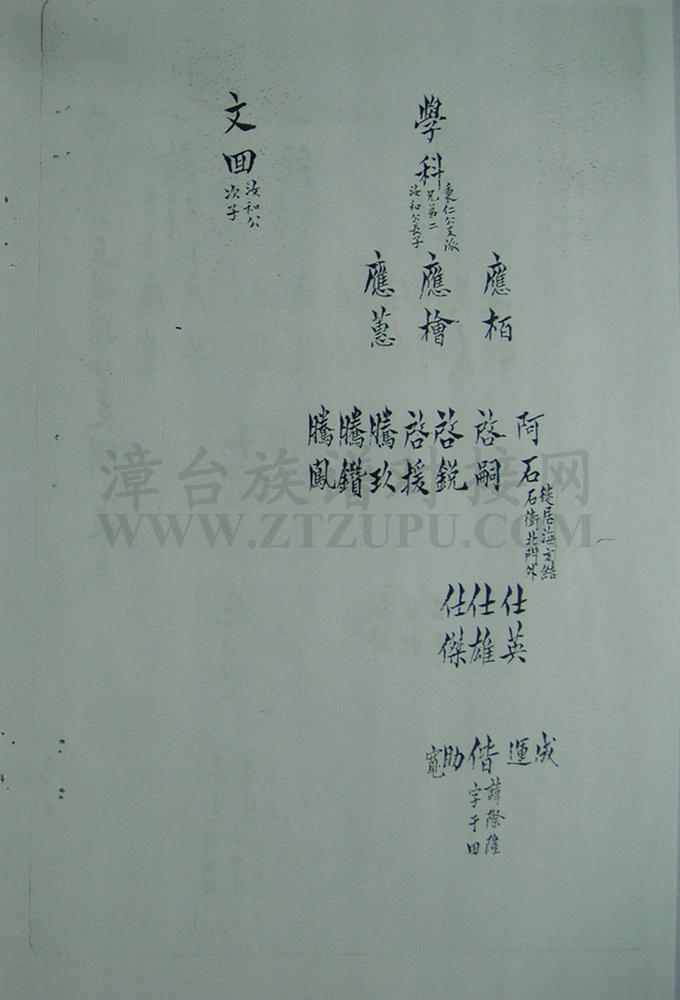 學科
秉仁公支派
兄弟二
汝和公長子
文回
汝和公
次子
應栢
應檜
應蕙
阿石
徙居海方結
石衛北門外
啓嗣
啓銳
啓援
騰玖
騰鑽
騰鳳
仕英
仕雄
仕傑
成
運
偕
諱際隆
字于田
助
寬
漳台族谱对接网
WWW.ZTZUPU.COM